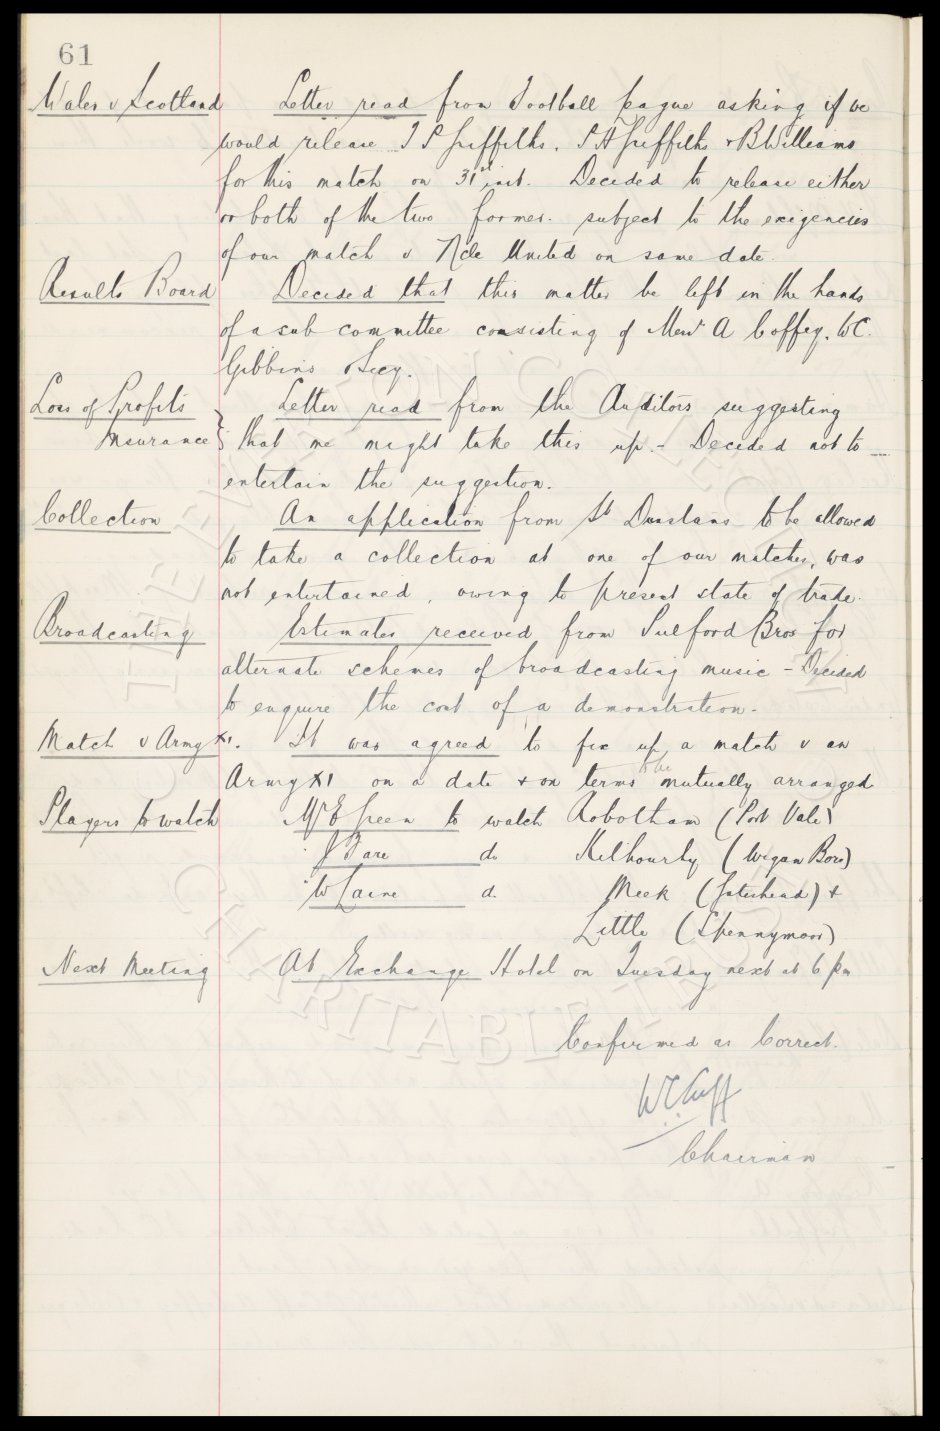 61
Wales v Scotland Letter read from Football League asking if we
would release T P Griffiths, P H Griffiths & B Williams
for this match on 31st inst. Decided to release either
or both of the two former subject to the exigencies
of our match v Ncle United on same date.
Results Board Decided that this matter be left in the hands
of a sub committee consisting of Messrs A Coffey, W C.
Gibbins & Secy.
Loss of Profits Letter read from the Auditors suggesting
Insurance } that we might take this up. - Decided not to
entertain the suggestion.
Collection An application from St Dunstans to be allowed
to take a collection at one of our matches, was
not entertained, owing to present state of trade.
Broadcasting Estimates received from Pulford Bros for
alternate schemes of broadcasting music - Decided
to enquire the cost of a demonstration.
Match v Army XI. It was agreed to fix up a match v an
Army XI on a date & on terms to be mutually arranged
Players to watch Mr E Green to watch Robotham (Port Vale)
" J Fare do Kilhourly (Wigan Boro)
" W Laine do Meek (Gateshead) &
Little (Spennymoor)
Next Meeting At Exchange Hotel on Tuesday next at 6 pm
Confirmed as Correct.
W C Cuff
Chairman
THE EVERTON COLLECTION
CHARITABLE TRUST